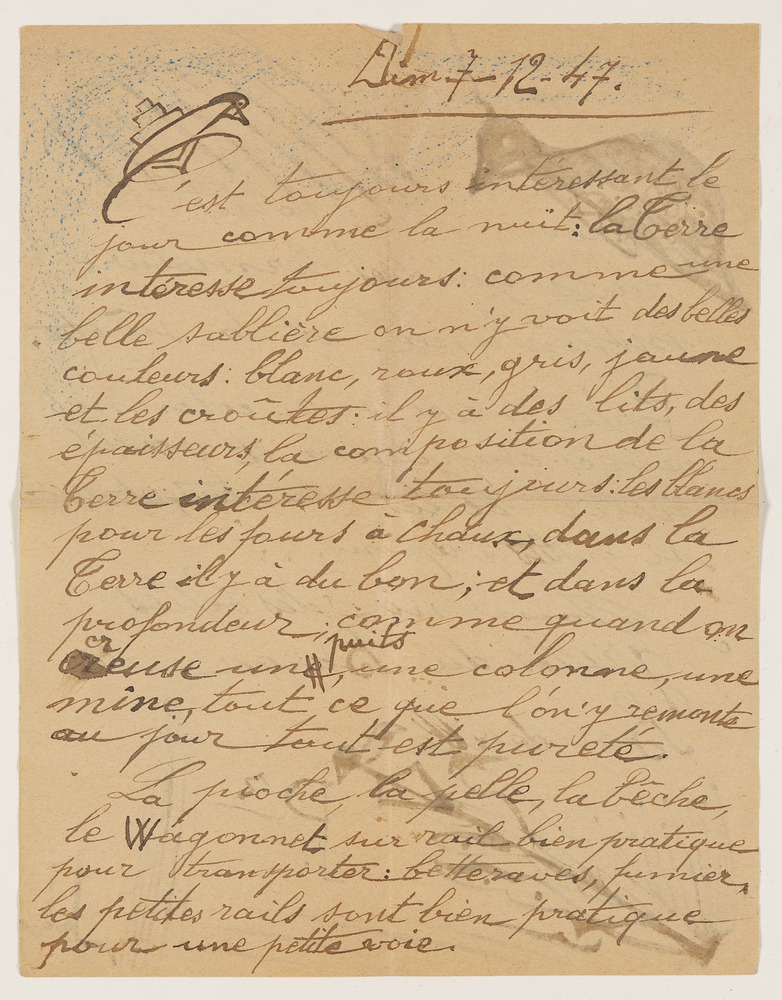 Dim 7-12-47.
C'est toujours intéressant le
jour comme la nuit: la Terre
intéresse toujours: comme une
belle sablière on n'y voit des belles
couleurs: blanc, roux, gris, jaune
et les croûtes: il y à des lits, des
épaisseurs, la composition de la
Terre intéresse toujours: les blancs
pour les fours à chaux, dans la
Terre il y à du bon; et dans la
profondeur; comme quand on
creuse un puits, une colonne, une
mîne, tout ce que l'on'y remonte
au jour tout est pureté.
La pioche, la pelle, la bêche,
le Wagonnet sur rail bien pratique
pour transporter: betteraves, fumier,
les petites rails sont bien pratique
pour une petite voie.